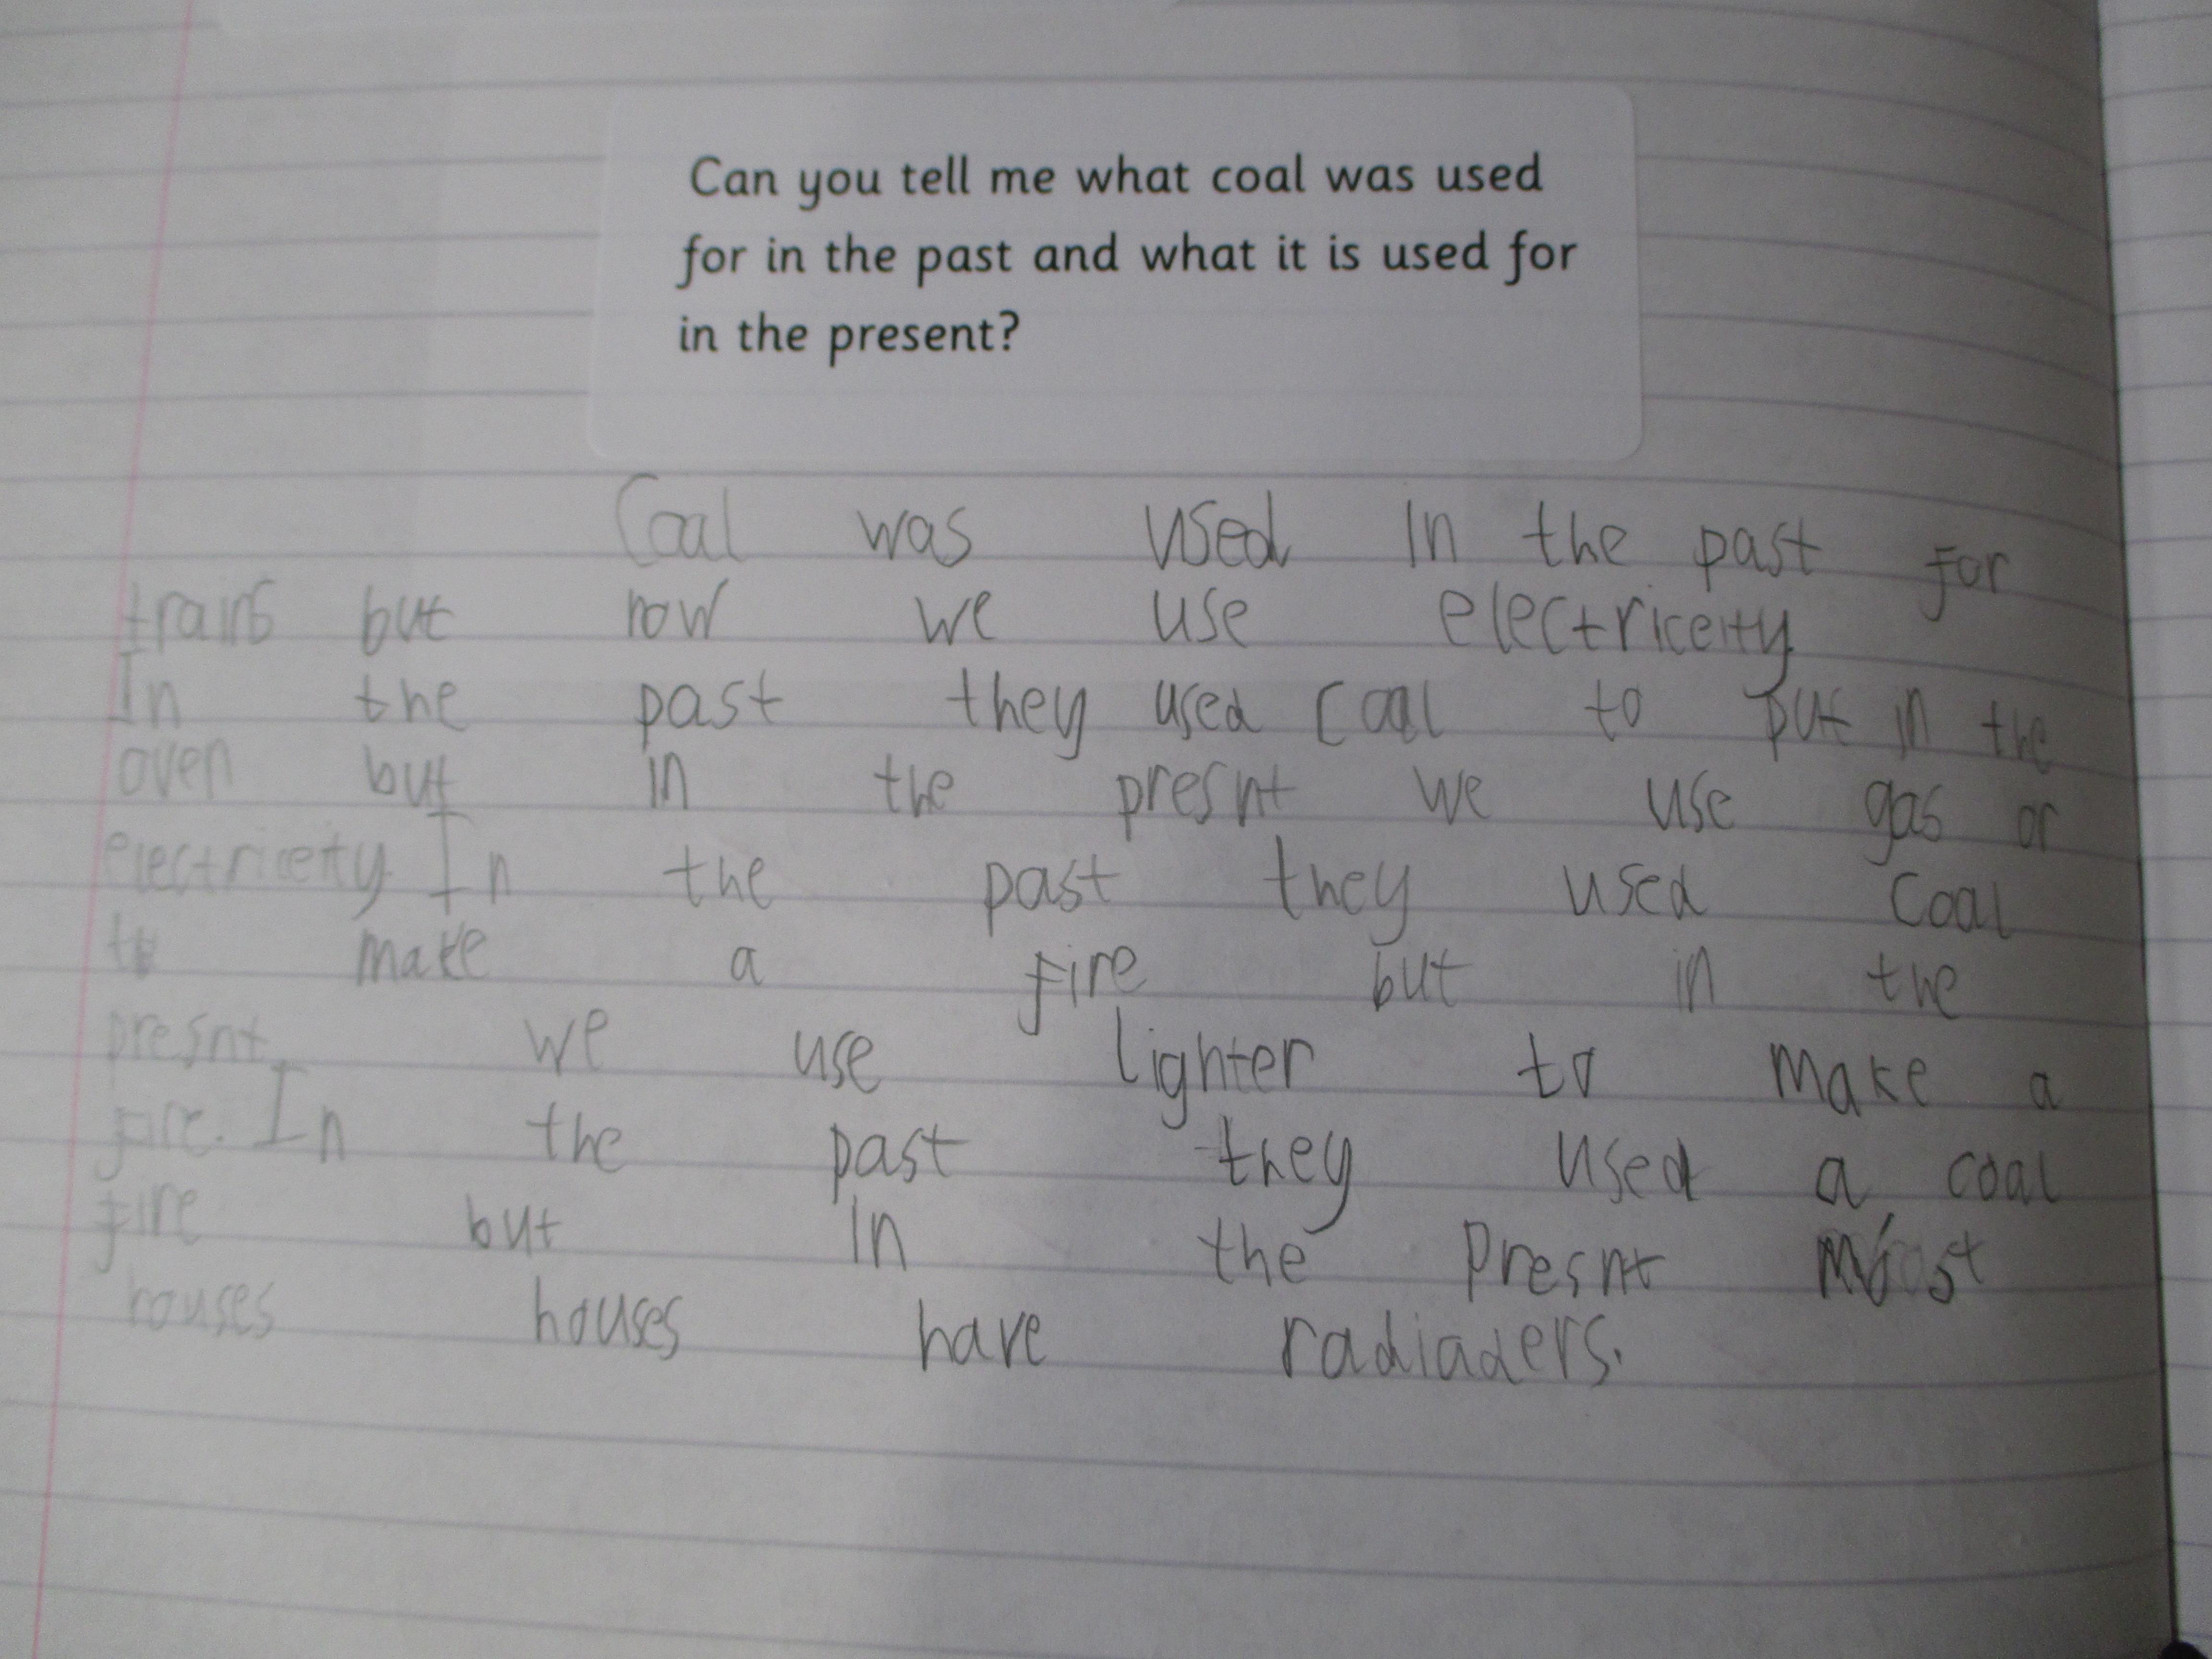 Can you tell me what coal was used
for in the past and what it is used for
in the present?
Coal was used in the past for
trains but now we use electriceity
In the past they used coal to put in the
oven but in the presnt we use gas or
electriceity. In the past they used coal
to make a fire but in the
presnt we use lighter to make a
fire. In the past they used a coal
fire but in the presnt most
houses houses have radiaders.